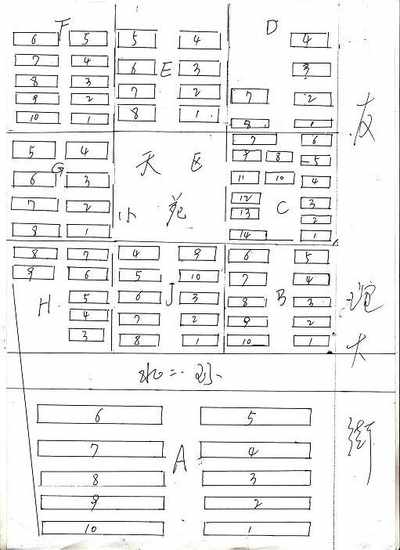 F
6 5
7 4
8 3
9 2
10 1
E
5 4
6 3
7 2
8 1
D
4
3
7 2
8 1
G
5 4
6 3
7 2
8 1
天
小 苑
C
7 6
7 8 5
11 10 4
12 3
13 2
14 1
H
8 7
9 6
5
4
3
J
4 9
5 10
6 3
7 2
8 1
B
6 5
7 4
8 3
9 2
10 1
A
6 5
7 4
8 3
9 2
10 1
友谊大街